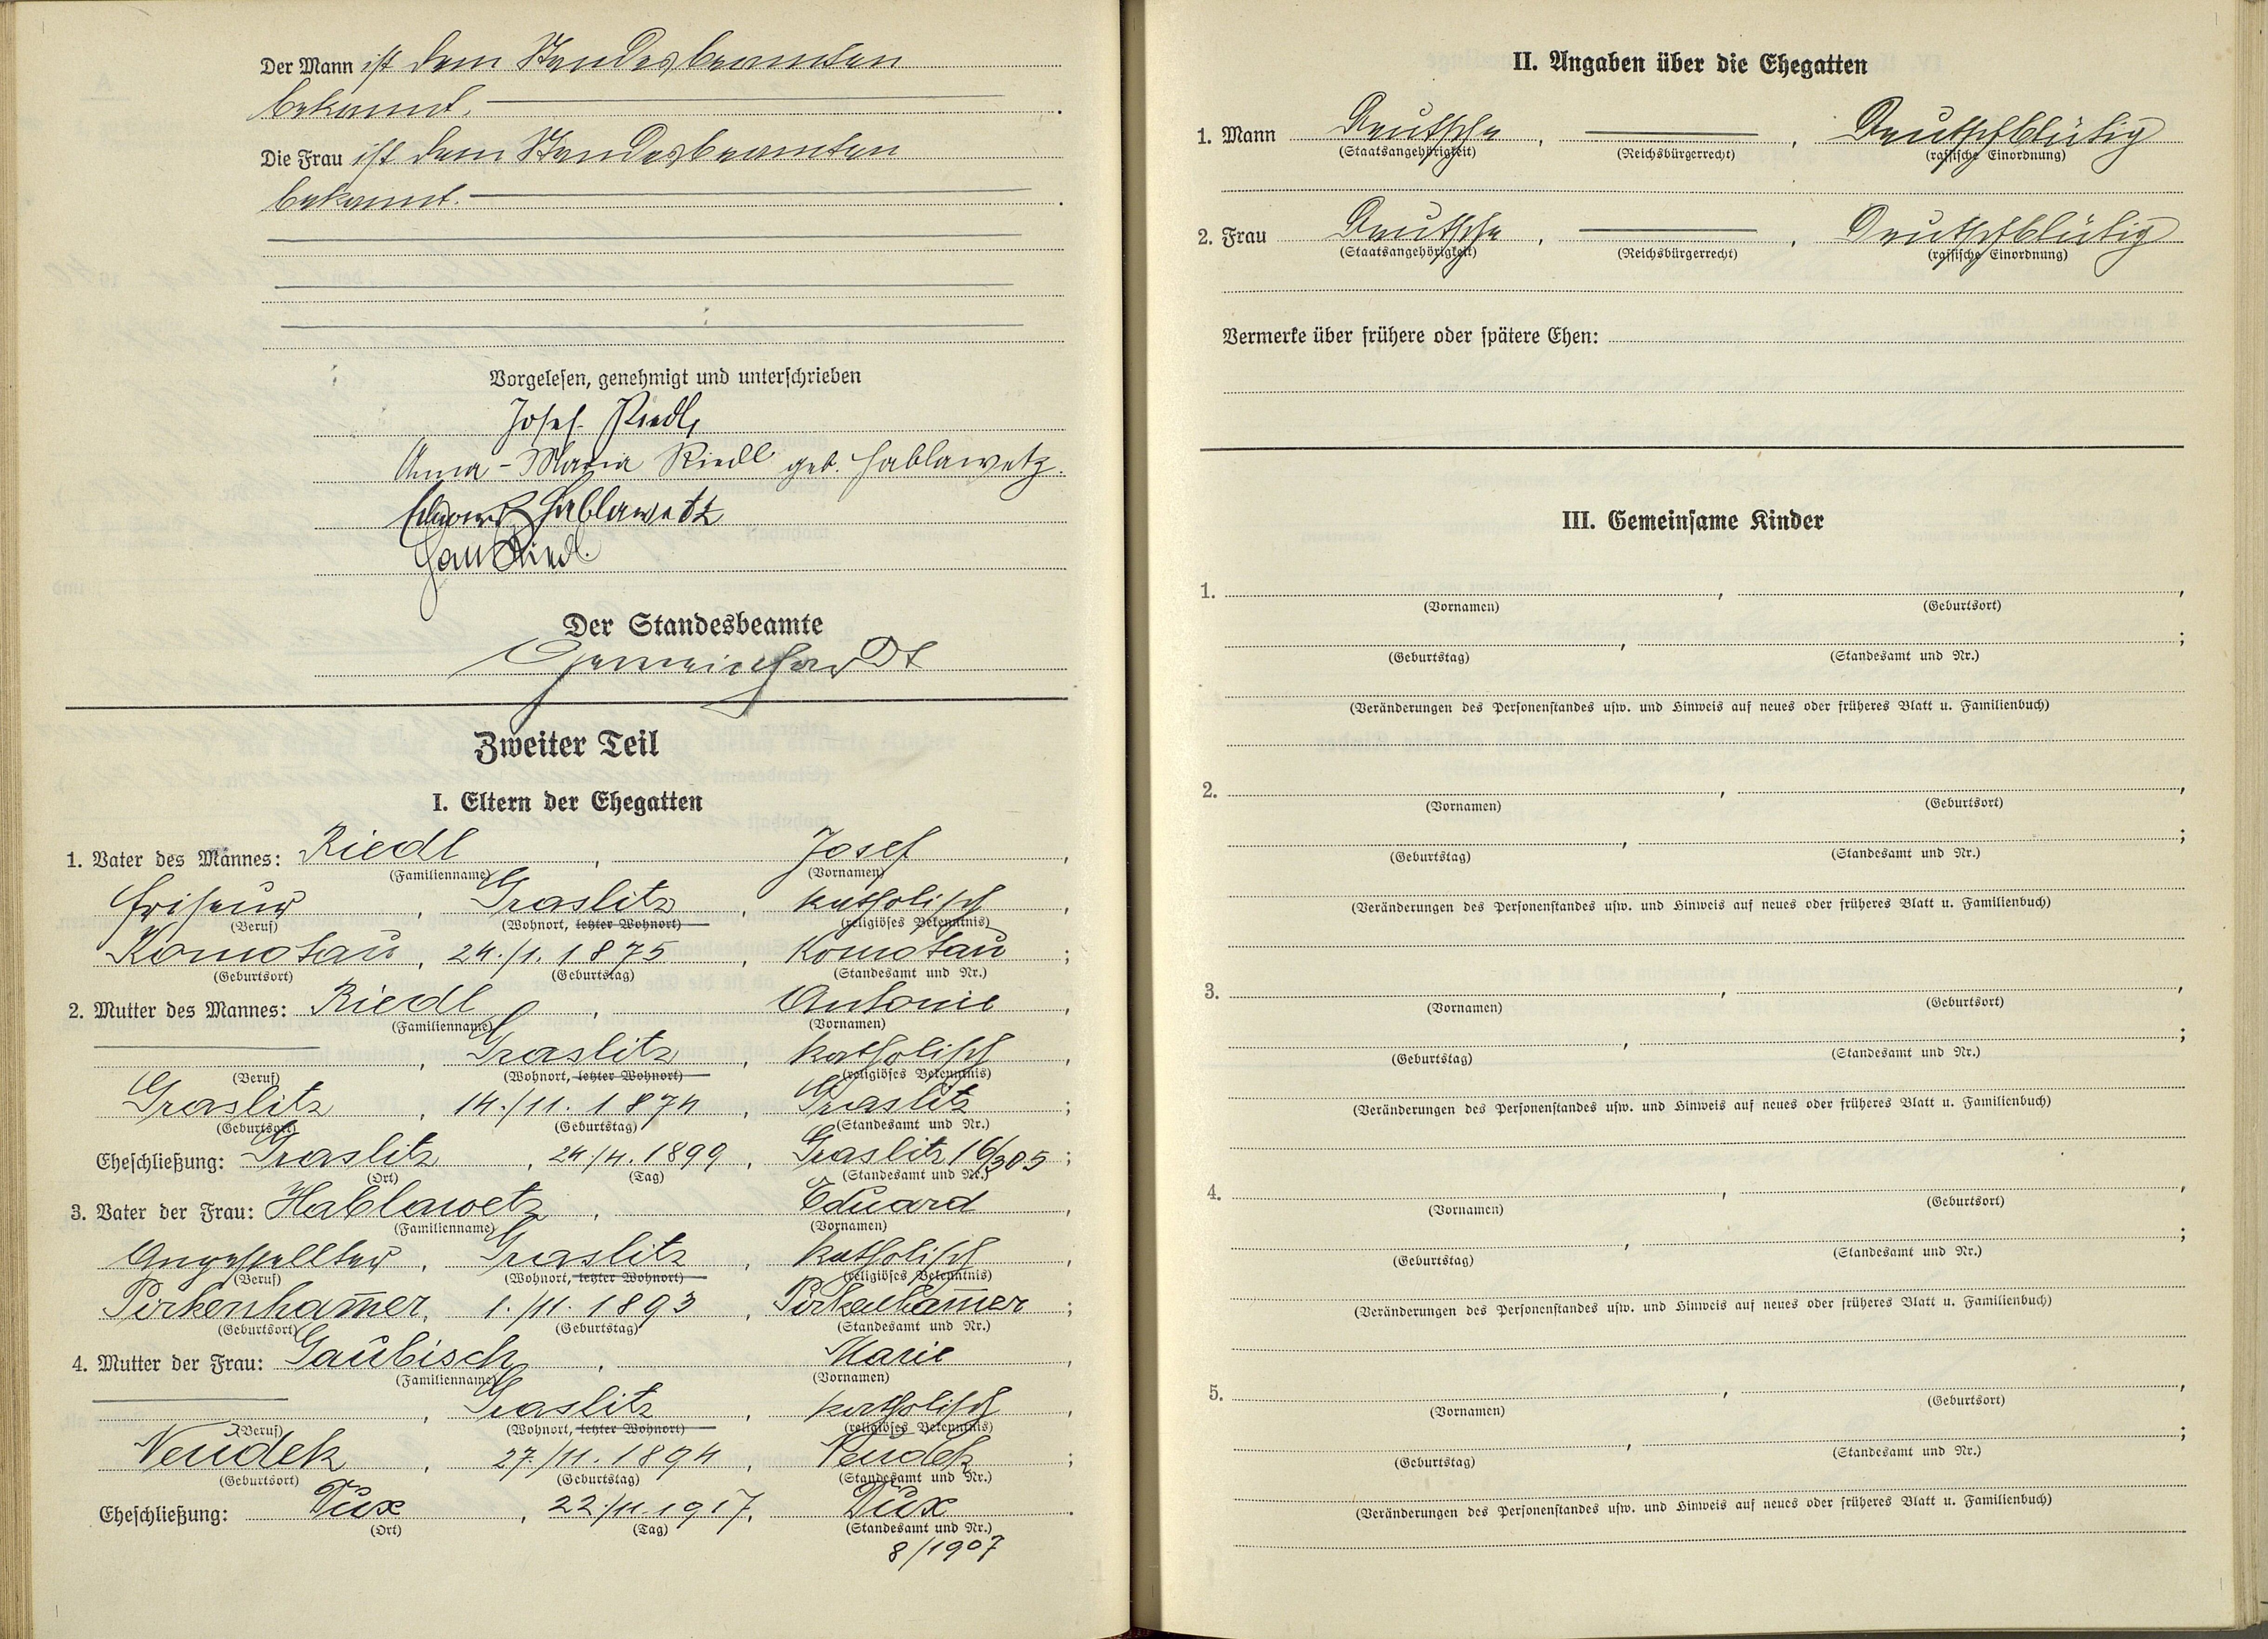 Der Mann ist dem Standesbeamten
bekannt.
Die Frau ist dem Standesbeamten
bekannt.
Vorgelesen, genehmigt und unterschrieben
Josef Riedl,
Anna-Maria Riedl geb. Hablawetz.
Eduard Hablawetz
Riedl.
Der Standesbeamte
Zweiter Teil
I. Eltern der Ehegatten
1. Vater des Mannes: Riedl, Josef,
(Familienname) (Vornamen)
Friseur, Graslitz, katholisch,
(Beruf) (Wohnort, letzter Wohnort) (religiöses Bekenntnis)
Komotau, 24./1. 1875, Komotau;
(Geburtsort) (Geburtstag) (Standesamt und Nr.)
2. Mutter des Mannes: Riedl, Antonie,
(Familienname) (Vornamen)
, Graslitz, katholisch,
(Beruf) (Wohnort, letzter Wohnort) (religiöses Bekenntnis)
Graslitz, 14./11. 1874, Graslitz;
(Geburtsort) (Geburtstag) (Standesamt und Nr.)
Eheschließung: Graslitz, 24./4. 1899, Graslitz 16/305;
(Ort) (Tag) (Standesamt und Nr.)
3. Vater der Frau: Hablawetz, Eduard,
(Familienname) (Vornamen)
Angestellter, Graslitz, katholisch,
(Beruf) (Wohnort, letzter Wohnort) (religiöses Bekenntnis)
Pirkenham̅er, 1./11. 1893, Pirkenham̅er;
(Geburtsort) (Geburtstag) (Standesamt und Nr.)
4. Mutter der Frau: Gaubisch, Marie,
(Familienname) (Vornamen)
, Graslitz, katholisch,
(Beruf) (Wohnort, letzter Wohnort) (religiöses Bekenntnis)
Neudek, 27./11. 1894, Neudek;
(Geburtsort) (Geburtstag) (Standesamt und Nr.)
Eheschließung: Dux, 22./11. 1917, Dux.
(Ort) (Tag) (Standesamt und Nr.)
8/1907
II. Angaben über die Ehegatten
1. Mann Deutsche, , Deutschblütig
(Staatsangehörigkeit) (Reichsbürgerrecht) (rassische Einordnung)
2. Frau Deutsche, , Deutschblütig
(Staatsangehörigkeit) (Reichsbürgerrecht) (rassische Einordnung)
Vermerke über frühere oder spätere Ehen:
III. Gemeinsame Kinder
1. , ,
(Vornamen) (Geburtsort)
, ;
(Geburtstag) (Standesamt und Nr.)
(Veränderungen des Personenstandes usw. und Hinweis auf neues oder früheres Blatt u. Familienbuch)
2. , ,
(Vornamen) (Geburtsort)
, ;
(Geburtstag) (Standesamt und Nr.)
(Veränderungen des Personenstandes usw. und Hinweis auf neues oder früheres Blatt u. Familienbuch)
3. , ,
(Vornamen) (Geburtsort)
, ;
(Geburtstag) (Standesamt und Nr.)
(Veränderungen des Personenstandes usw. und Hinweis auf neues oder früheres Blatt u. Familienbuch)
4. , ,
(Vornamen) (Geburtsort)
, ;
(Geburtstag) (Standesamt und Nr.)
(Veränderungen des Personenstandes usw. und Hinweis auf neues oder früheres Blatt u. Familienbuch)
5. , ,
(Vornamen) (Geburtsort)
, ;
(Geburtstag) (Standesamt und Nr.)
(Veränderungen des Personenstandes usw. und Hinweis auf neues oder früheres Blatt u. Familienbuch)